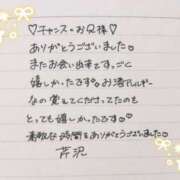 ♡チャンスのお兄様♡
ありがとうございました。
またお会い出来てすっごく
嬉しかったです。お酒アレルギー
なの覚えてくださってたのも
とっても嬉しかったです♡
素敵な時間をありがとうございました
芹沢